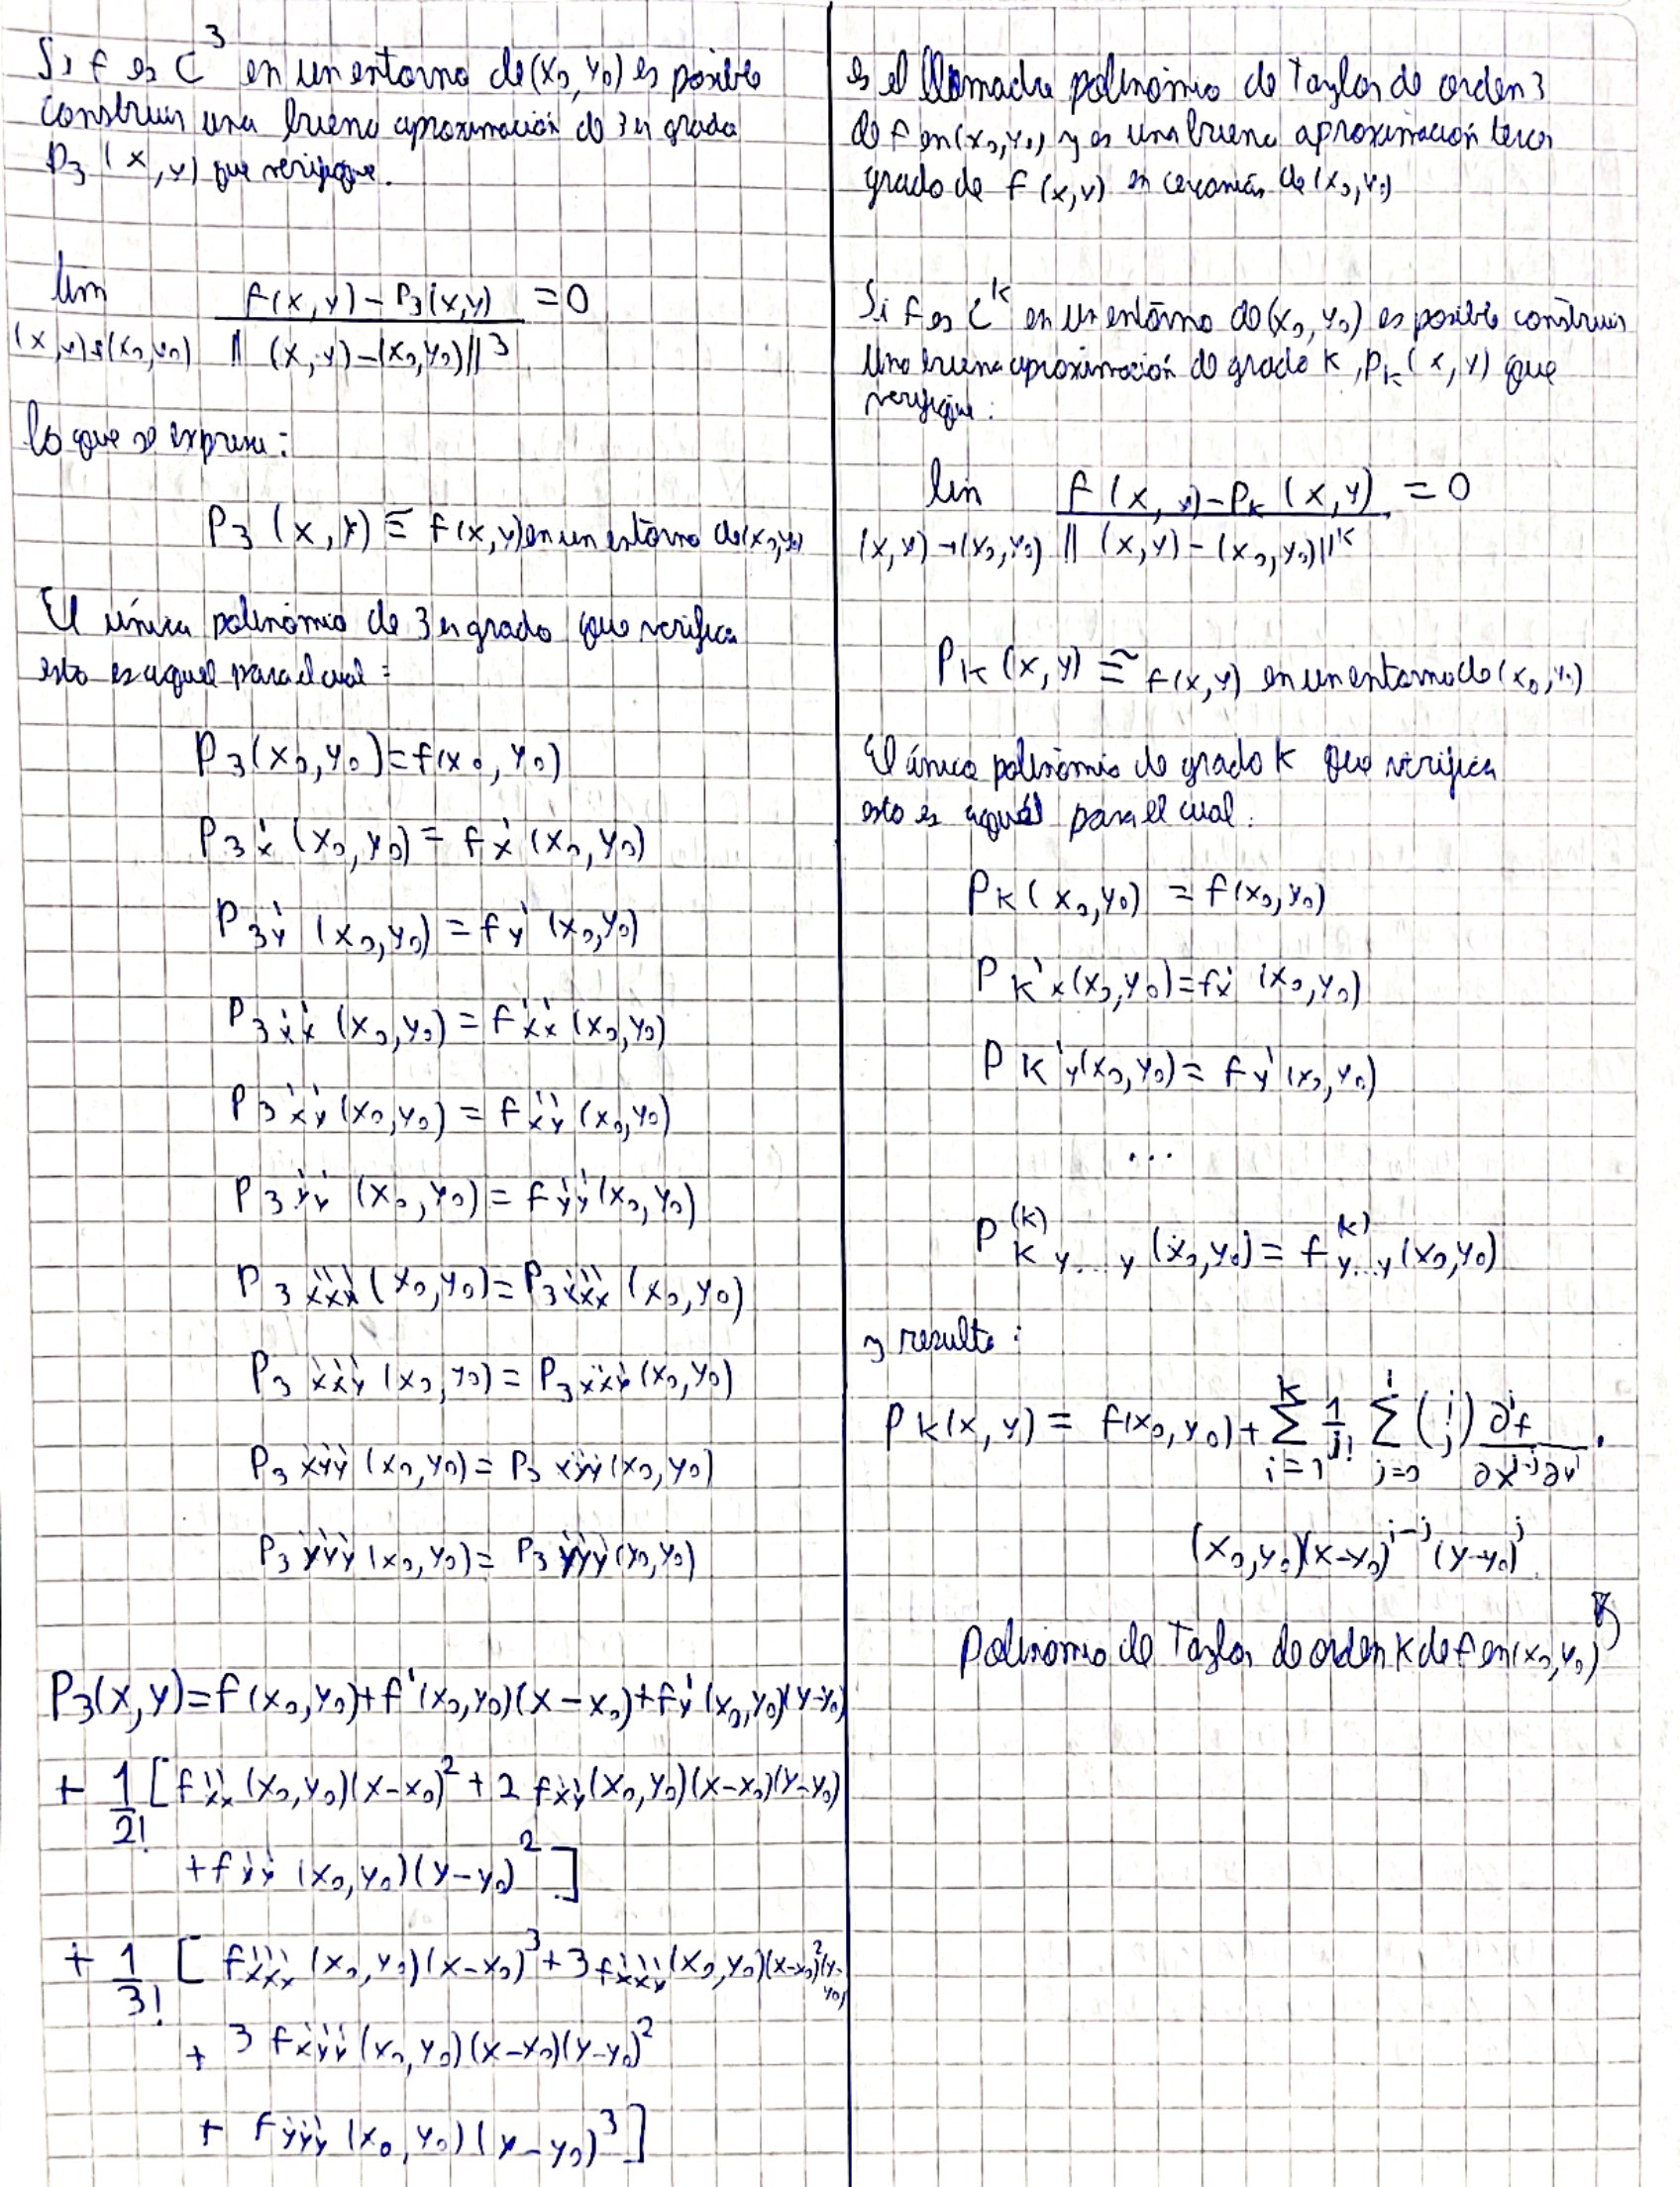 Si f es C³ en un entorno de (x₀, y₀) es posible
construir una buena aproximación de 3er grado
P₃(x, y) que verifique.
lim f(x, y) − P₃(x, y) = 0
(x, y)→(x₀, y₀) ‖(x, y) − (x₀, y₀)‖³
lo que se expresa:
P₃(x, y) ≅ f(x, y) en un entorno de (x₀, y₀)
El único polinomio de 3er grado que verifica
esto es aquel para el cual:
P₃(x₀, y₀) = f(x₀, y₀)
P₃'x(x₀, y₀) = f'x(x₀, y₀)
P₃'y(x₀, y₀) = f'y(x₀, y₀)
P₃''xx(x₀, y₀) = f''xx(x₀, y₀)
P₃''xy(x₀, y₀) = f''xy(x₀, y₀)
P₃''yy(x₀, y₀) = f''yy(x₀, y₀)
P₃'''xxx(x₀, y₀) = P₃'''xxx(x₀, y₀)
P₃'''xxy(x₀, y₀) = P₃'''xxy(x₀, y₀)
P₃'''xyy(x₀, y₀) = P₃'''xyy(x₀, y₀)
P₃'''yyy(x₀, y₀) = P₃'''yyy(x₀, y₀)
P₃(x, y) = f(x₀, y₀) + f'(x₀, y₀)(x − x₀) + f'y(x₀, y₀)(y − y₀)
+ 1/2! [f''xx(x₀, y₀)(x − x₀)² + 2 f''xy(x₀, y₀)(x − x₀)(y − y₀)
+ f''yy(x₀, y₀)(y − y₀)²]
+ 1/3! [f'''xxx(x₀, y₀)(x − x₀)³ + 3 f'''xxy(x₀, y₀)(x − x₀)²(y − y₀)
+ 3 f'''xyy(x₀, y₀)(x − x₀)(y − y₀)²
+ f'''yyy(x₀, y₀)(y − y₀)³]
es el llamado polinomio de Taylor de orden 3
de f en (x₀, y₀) y es una buena aproximación tercer
grado de f(x, y) en cercanías de (x₀, y₀)
Si f es Cᵏ en un entorno de (x₀, y₀) es posible construir
una buena aproximación de grado k, Pₖ(x, y) que
verifique:
lim f(x, y) − Pₖ(x, y) = 0
(x, y)→(x₀, y₀) ‖(x, y) − (x₀, y₀)‖ᵏ
Pₖ(x, y) ≅ f(x, y) en un entorno de (x₀, y₀)
El único polinomio de grado k que verifica
esto es aquel para el cual:
Pₖ(x₀, y₀) = f(x₀, y₀)
Pₖ'x(x₀, y₀) = f'x(x₀, y₀)
Pₖ'y(x₀, y₀) = f'y(x₀, y₀)
...
Pₖ⁽ᵏ⁾y...y(x₀, y₀) = f⁽ᵏ⁾y...y(x₀, y₀)
y resulta:
Pₖ(x, y) = f(x₀, y₀) + Σᵢ₌₁ᵏ 1/i! Σⱼ₌₀ⁱ (i j) ∂ⁱf/∂xⁱ⁻ʲ∂yʲ ·
(x₀, y₀)(x − x₀)ⁱ⁻ʲ(y − y₀)ʲ
Polinomio de Taylor de orden k de f en (x₀, y₀)